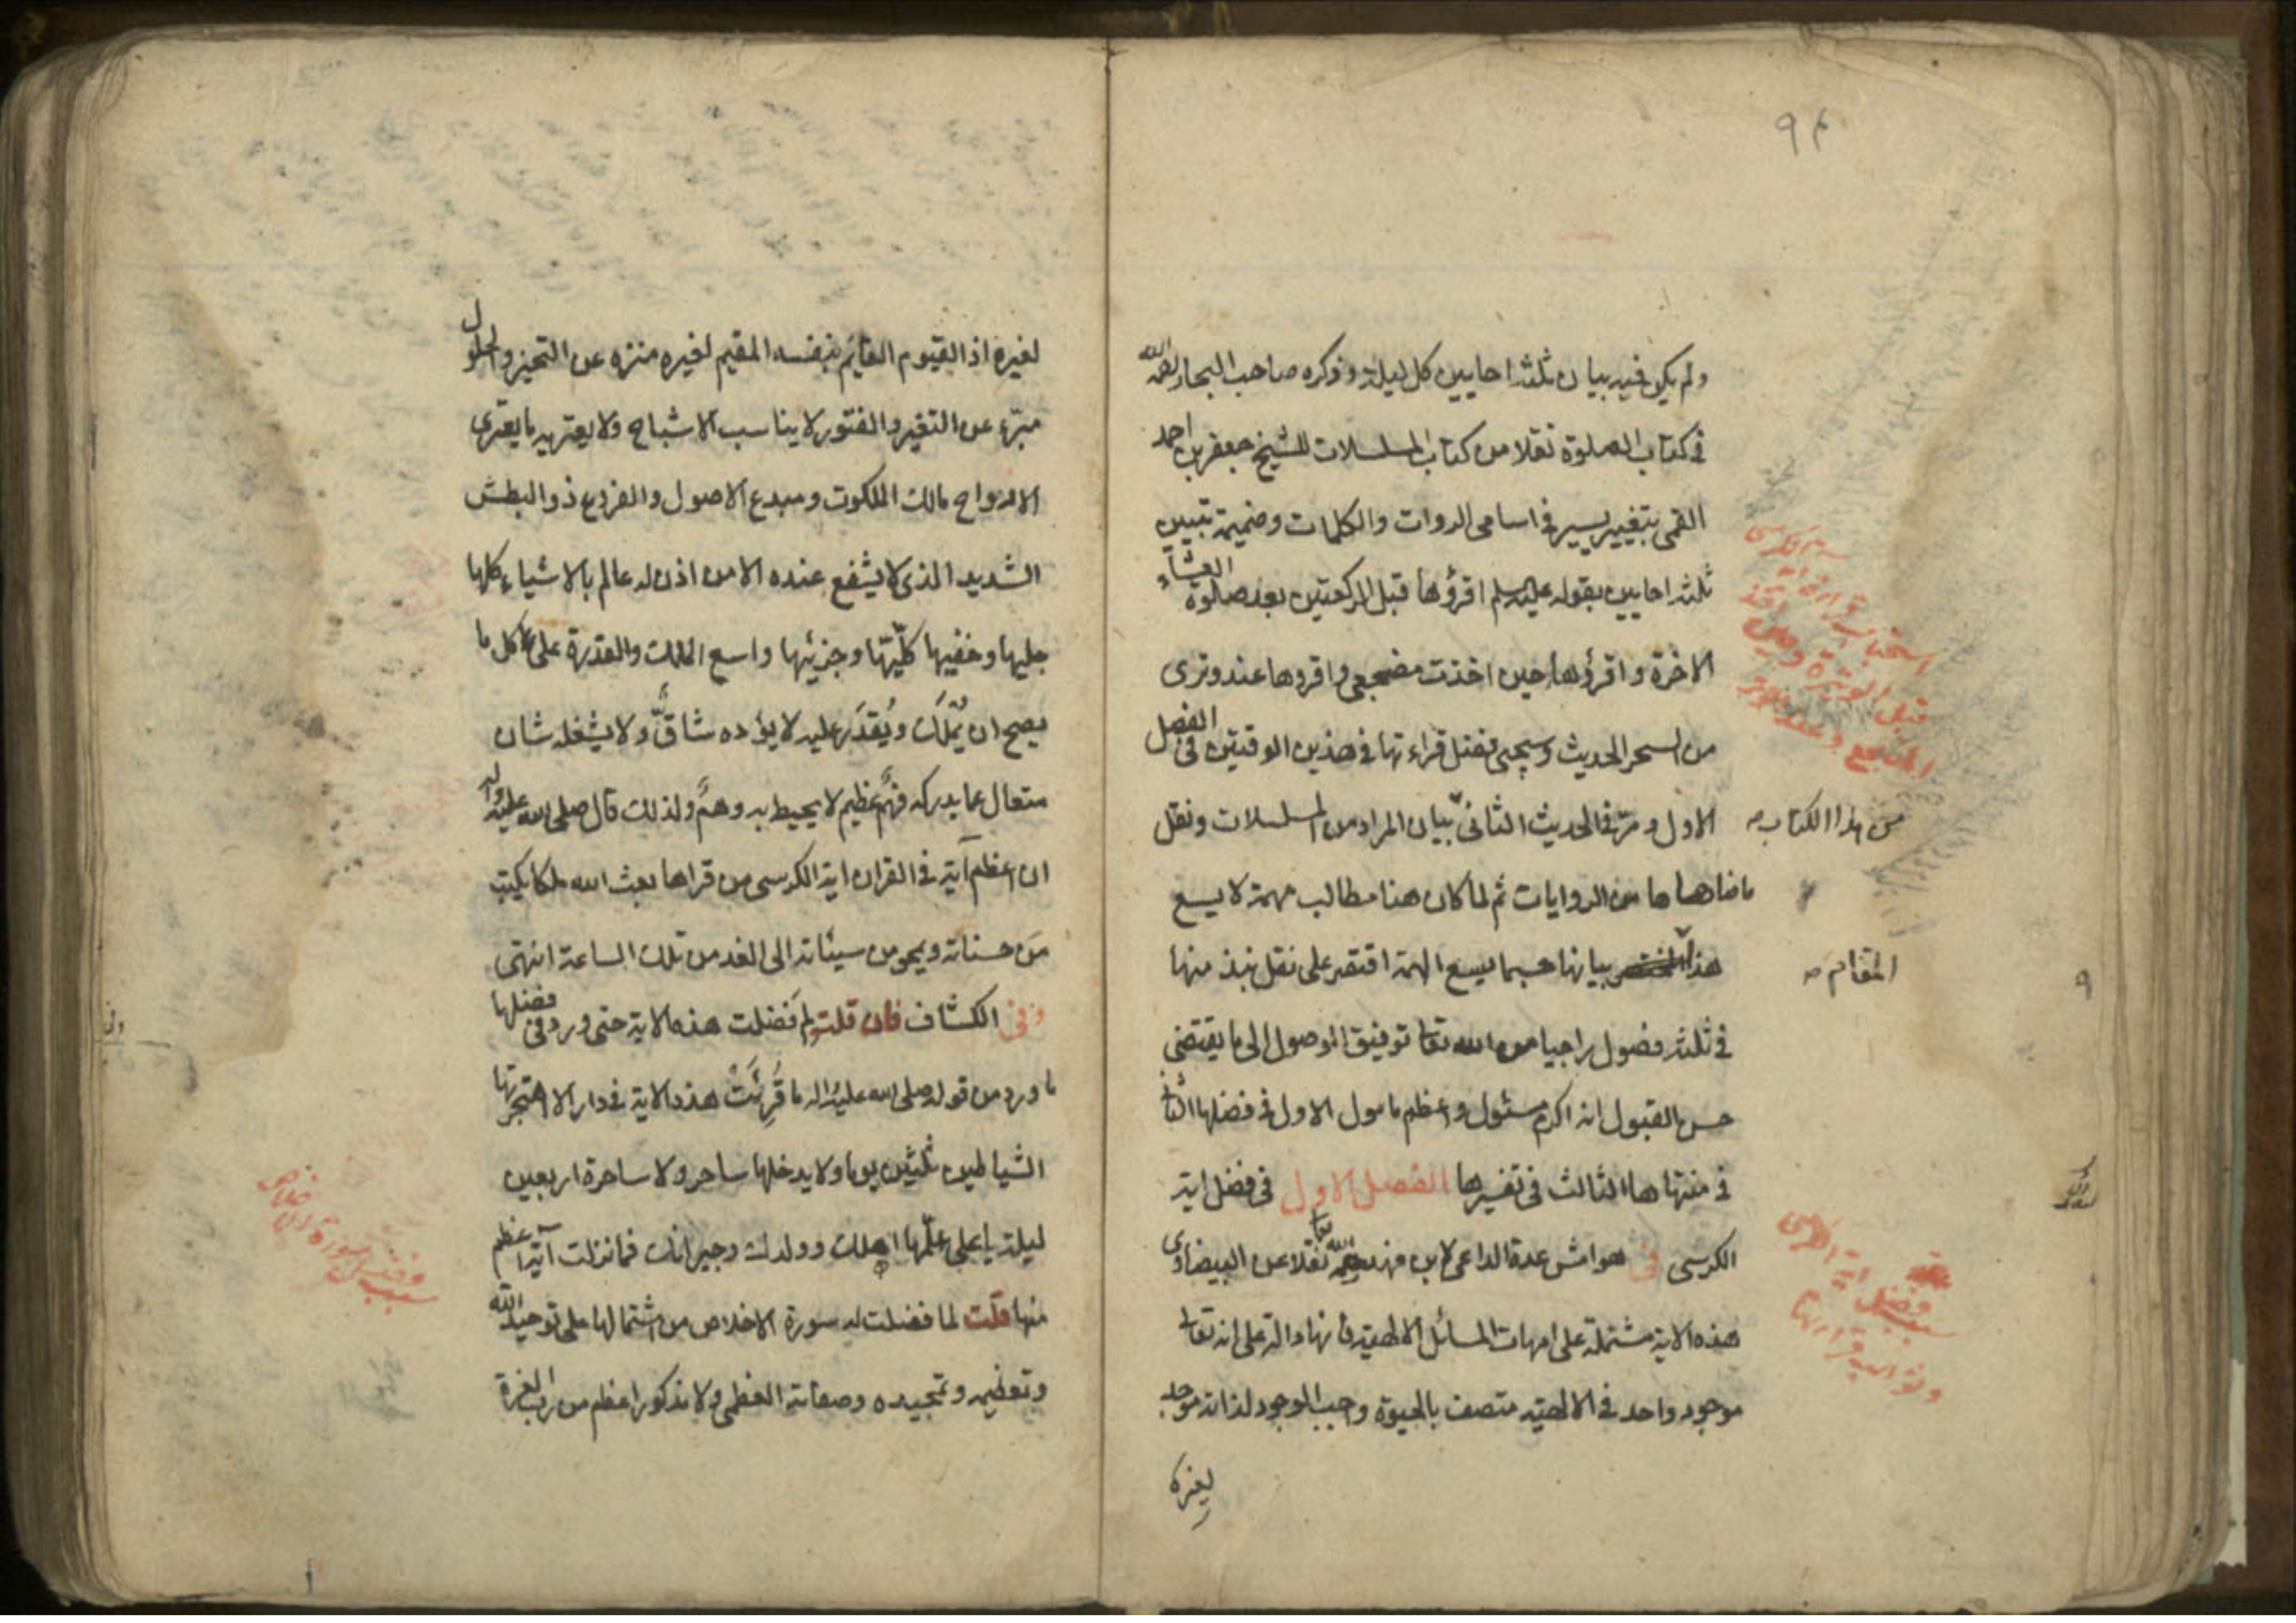 ٩٤
ولم يكن فيه بيان ثلثة احايين كل ليلة وذكره صاحب البحار رحمه الله
في كتاب الصلوة نقلا من كتاب المسلسلات للشيخ جعفر بن احمد
القمى بتغيير يسير في اسامى الروات والكلمات وضميمة تبيين
ثلثة احايين بقوله عليه السلم اقرؤها قبل الركعتين بعد صلوة العشاء
الاخرة واقرؤها حين اخذت مضجعى واقرؤها عند وترى
من السحر الحديث وسيجىء فضل قراءتها في هذين الوقتين في الفصل
الاول ومر في الحديث الثانى بيان المراد من المسلسلات ونقل
من هذا الكتاب صح
ما ضاهاها من الروايات ثم لما كان هنا مطالب مهمة لا يسع
هذا بيانها حسبما يسع الهمة اقتصر على نقل نبذ منها
المقام صح
في ثلثة فصول راجيا من الله تعا توفيق الوصول الى ما يقتضى
حسن القبول انه اكرم مسئول واعظم مامول الاول في فضلها الثانى
في منتهاها الثالث في تفسيرها الفصل الاول في فضل اية
الكرسى في هوامش عدة الداعى لابن فهد رحمه الله تعا نقلا عن البيضاوى
هذه الاية مشتملة على امهات المسائل الالهية فانها دالة على انه تعالى
موجود واحد في الالهية متصف بالحيوة واجب الوجود لذاته موجد
لغيره
فضل اية الكرسى
وثواب قراءتها
لغيره اذ القيوم القائم بنفسه المقيم لغيره منزه عن التحيز والحلول
مبرء عن التغير والفتور لا يناسب الاشباح ولا يعتريه ما يعترى
الارواح مالك الملكوت ومبدع الاصول والفروع ذو البطش
الشديد الذى لا يشفع عنده الا من اذن له عالم بالاشياء كلها
جليها وخفيها كليّها وجزئيها واسع الملك والقدرة على كل ما
يصح ان يُملَك ويُقدَر عليه لا يؤده شاقّ ولا يشغله شان
متعال عما يدركه فهمٌ عظيم لا يحيط به وهمٌ ولذلك قال صلى الله عليه واله
ان اعظم آية في القران اية الكرسى من قراها بعث الله ملكا يكتب
من حسناته ويمحو من سيئاته الى الغد من تلك الساعة انتهى
وفي الكشاف فان قلت لم فضلت هذه الاية حتى ورد في فضلها
ما ورد من قوله صلى الله عليه واله ما قُرِئَتْ هذه الاية في دار الا اهتجرتها
الشياطين ثلثين يوما ولا يدخلها ساحر ولا ساحرة اربعين
ليلة يا على علّمها اهلك وولدك وجيرانك فما نزلت آية اعظم
منها قلت لما فضلت له سورة الاخلاص من اشتمالها على توحيد الله
وتعظيمه وتمجيده وصفاته العظمى ولا مذكور اعظم من رب العزة